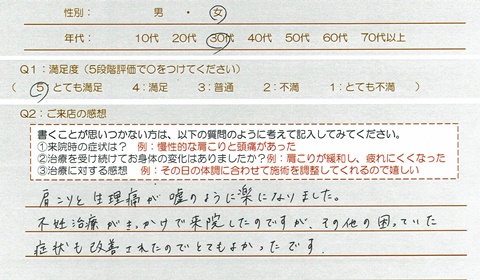 性別： 男 ・ 女
年代： 10代 20代 30代 40代 50代 60代 70代以上
Q1：満足度（5段階評価で〇をつけてください）
（ 5：とても満足 4：満足 3：普通 2：不満 1：とても不満 ）
Q2：ご来店の感想
書くことが思いつかない方は、以下の質問のように考えて記入してみてください。
①来院時の症状は？ 例：慢性的な肩こりと頭痛があった
②治療を受け続けてお身体の変化はありましたか？例：肩こりが緩和し、疲れにくくなった
③治療に対する感想 例：その日の体調に合わせて施術を調整してくれるので嬉しい
肩こりと生理痛が嘘のように楽になりました。
不妊治療がきっかけで来院したのですが、その他の困っていた
症状も改善されたのでとてもよかったです。